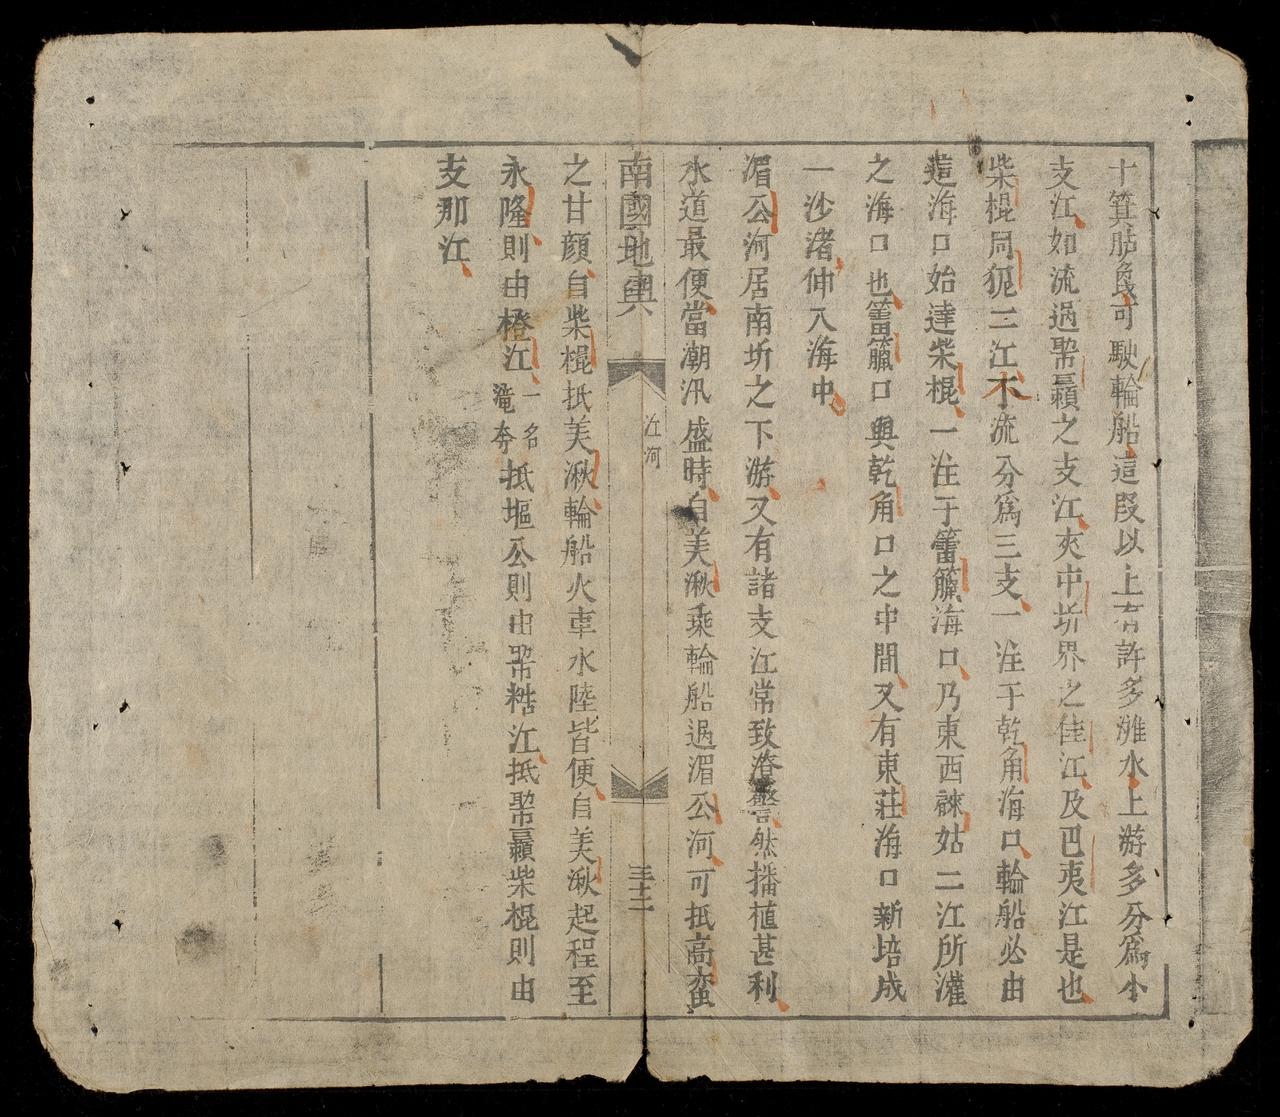 十箕胋⿰可駛輪船這段以上有許多灘水上游多分為小
支江如流過幫𩕳之支江夾中圻界之佳江及巴夷江是也
柴棍同狔二江下流分爲三支一注于乾角海口輪船必由
這海口始達柴棍一注于籗𥵛海口乃東西𥛭姑二江所灌
之海口也籗𥵛口與乾角口之中間又有東莊海口新培成
一沙渚伸入海中
湄公河居南圻之下游又有諸支江常致瀋然播植甚利
水道最便當潮汛盛時自美湫乘輪船過湄公河可抵高蛮
南國地輿
江河
三十二
之甘顔自柴棍抵美湫輪船火車水陸皆便自美湫起程至
永隆則由橙江一名滝夲抵塸公則由幫𥹋江抵幫𩕳柴棍則由
支那江